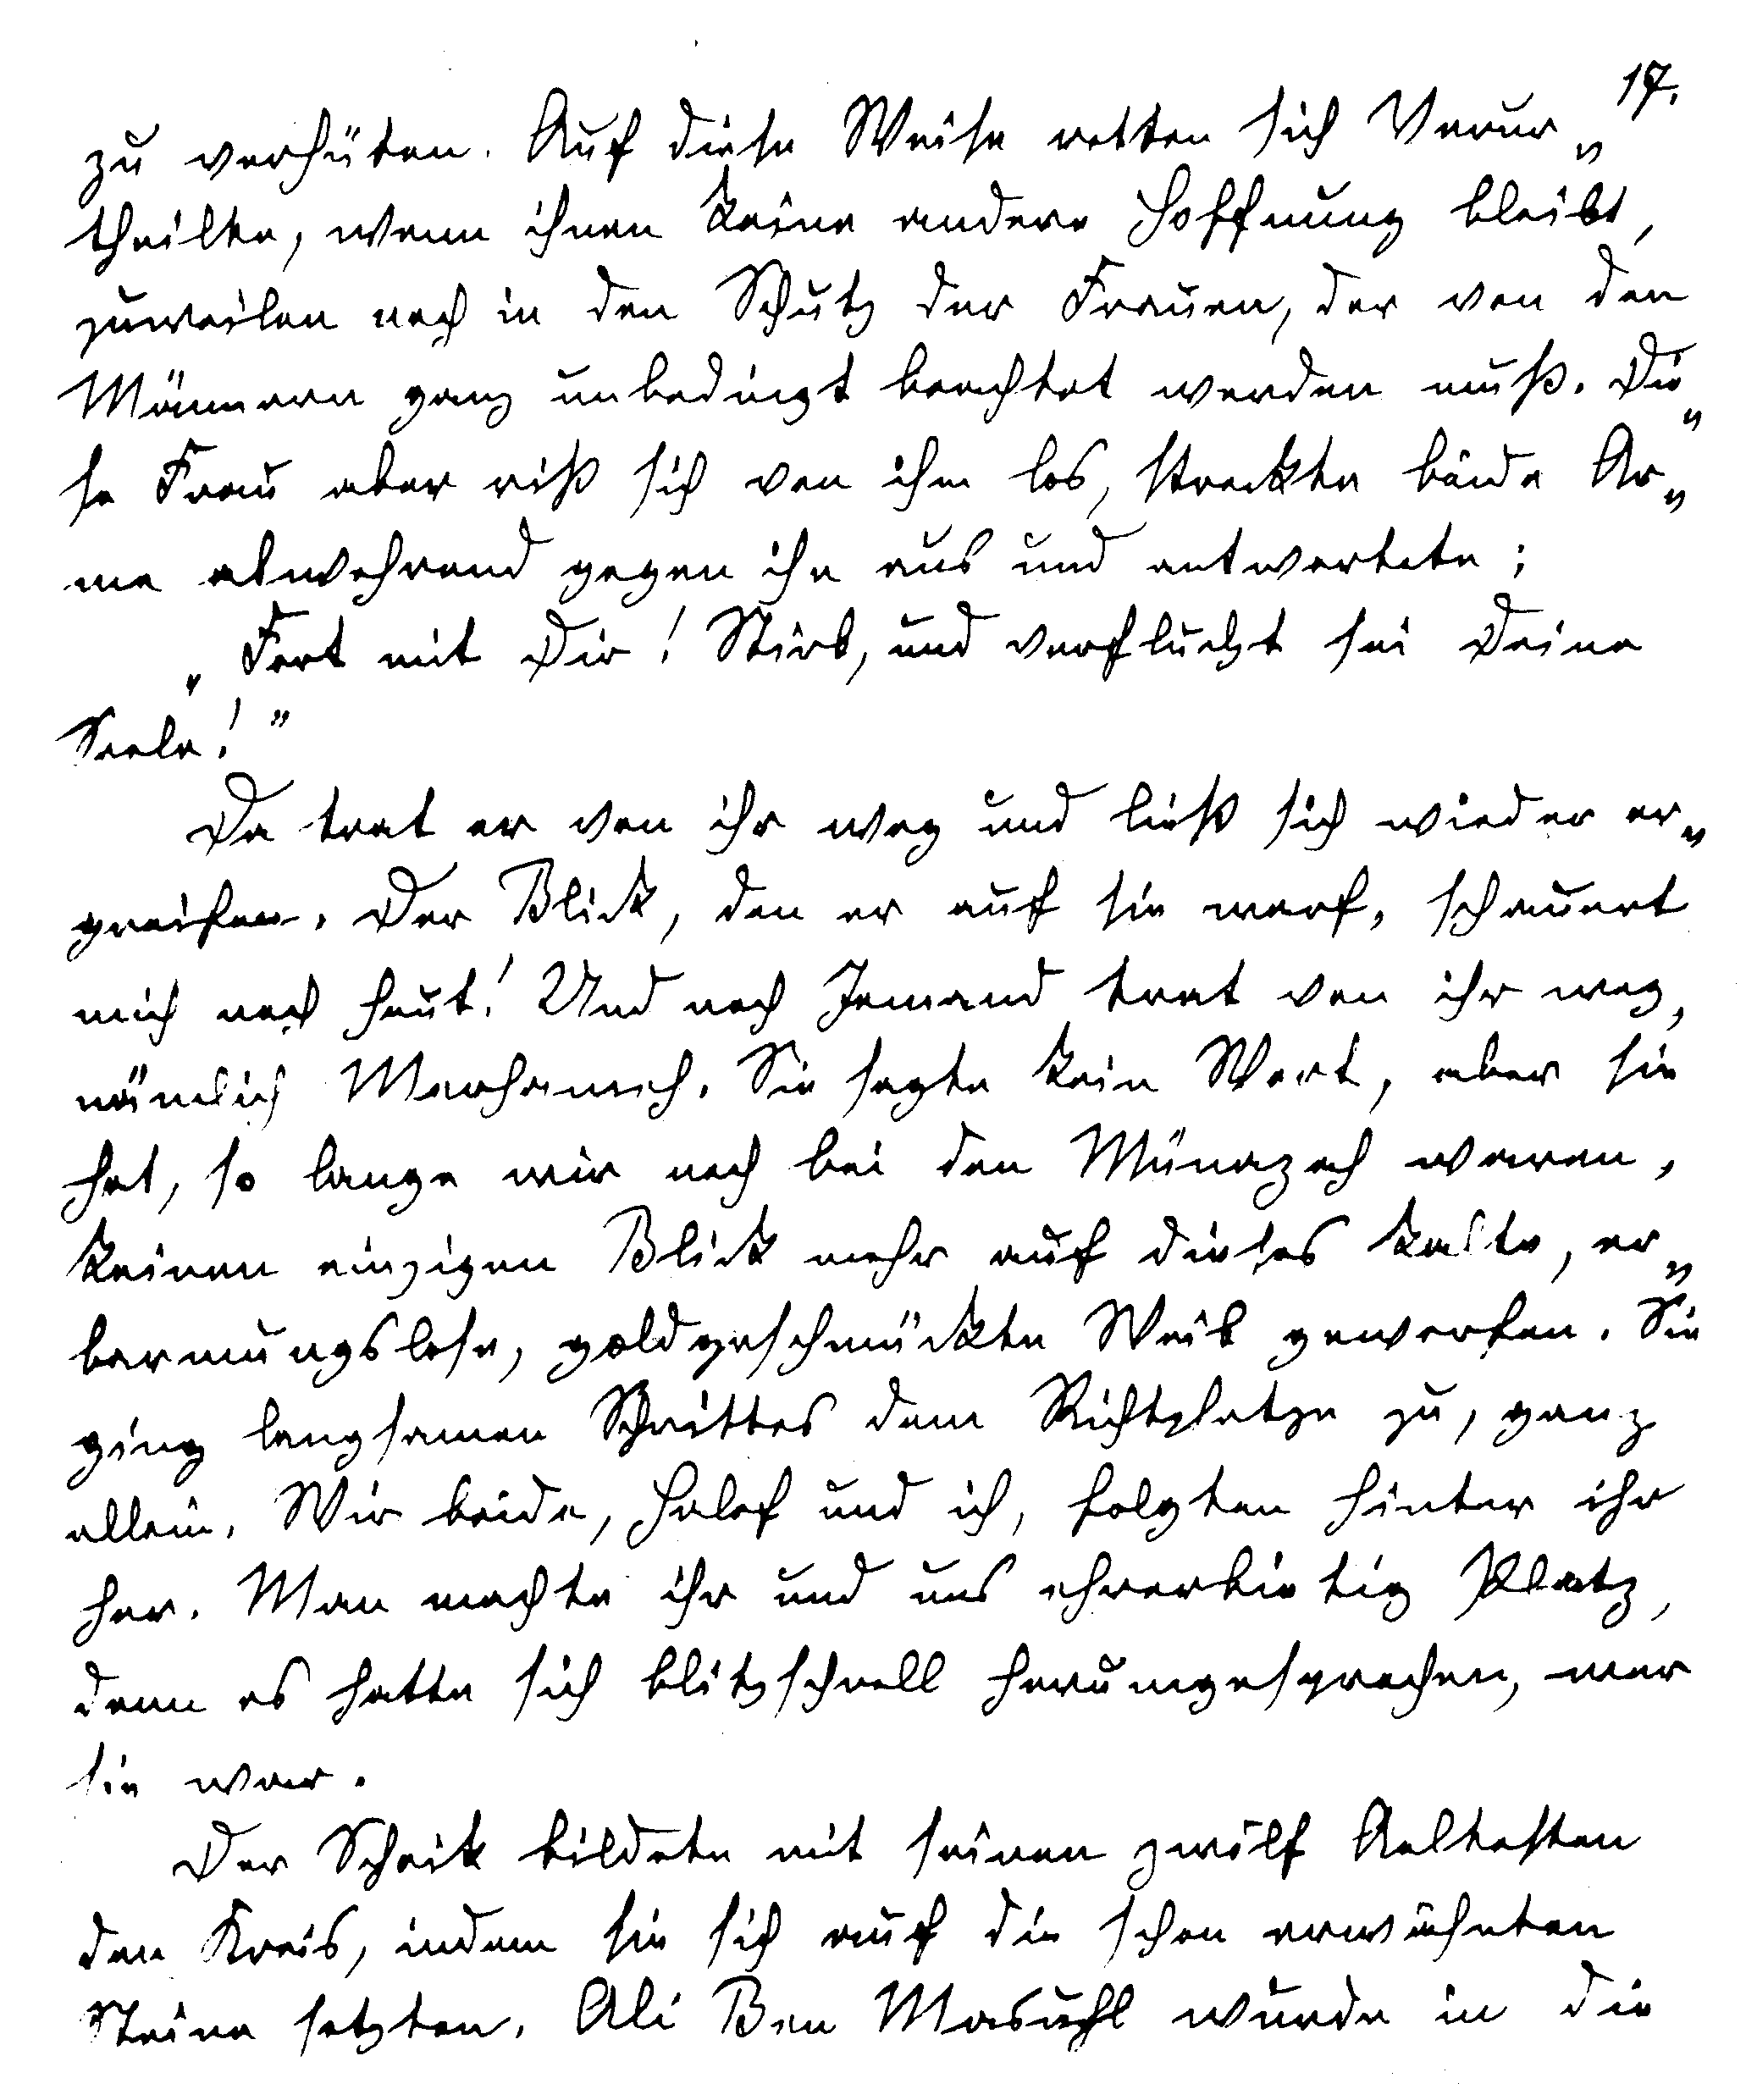 17.
zu verhüten. Auf diese Weise retten sich Verur„
theilte, wenn ihnen keine andere Hoffnung bleibt,
zuweilen noch in den Schutz der Frauen, der von den
Männern ganz unbedingt beachtet werden muß. Die„
se Frau aber riß sich von ihm los, streckte beide Ar„
me abwehrend gegen ihn aus und antwortete:
„Fort mit Dir! Stirb, und verflucht sei Deine
Seele!"
Da trat er von ihr weg und ließ sich wieder er„
greifen. Der Blick, den er auf sie warf, schauert
mich noch heut! Und noch Jemand trat von ihr weg,
nämlich Marhameh. Sie sagte kein Wort, aber sie
hat, so lange wir noch bei den Münazah waren,
keinen einzigen Blick mehr auf dieses kalte, er„
barmungslose, goldgeschmückte Weib geworfen. Sie
ging langsamen Schrittes dem Richtplatze zu, ganz
allein. Wir beide, Halef und ich, folgten hinter ihr
her. Man machte ihr und uns ehrerbietig Platz,
denn es hatte sich blitzschnell herumgesprochen, wer
sie war.
Der Scheik bildete mit seinen zwölf Aeltesten
den Kreis, indem sie sich auf die schon erwähnten
Steine setzten. Ali Ben Masuhl wurde in die